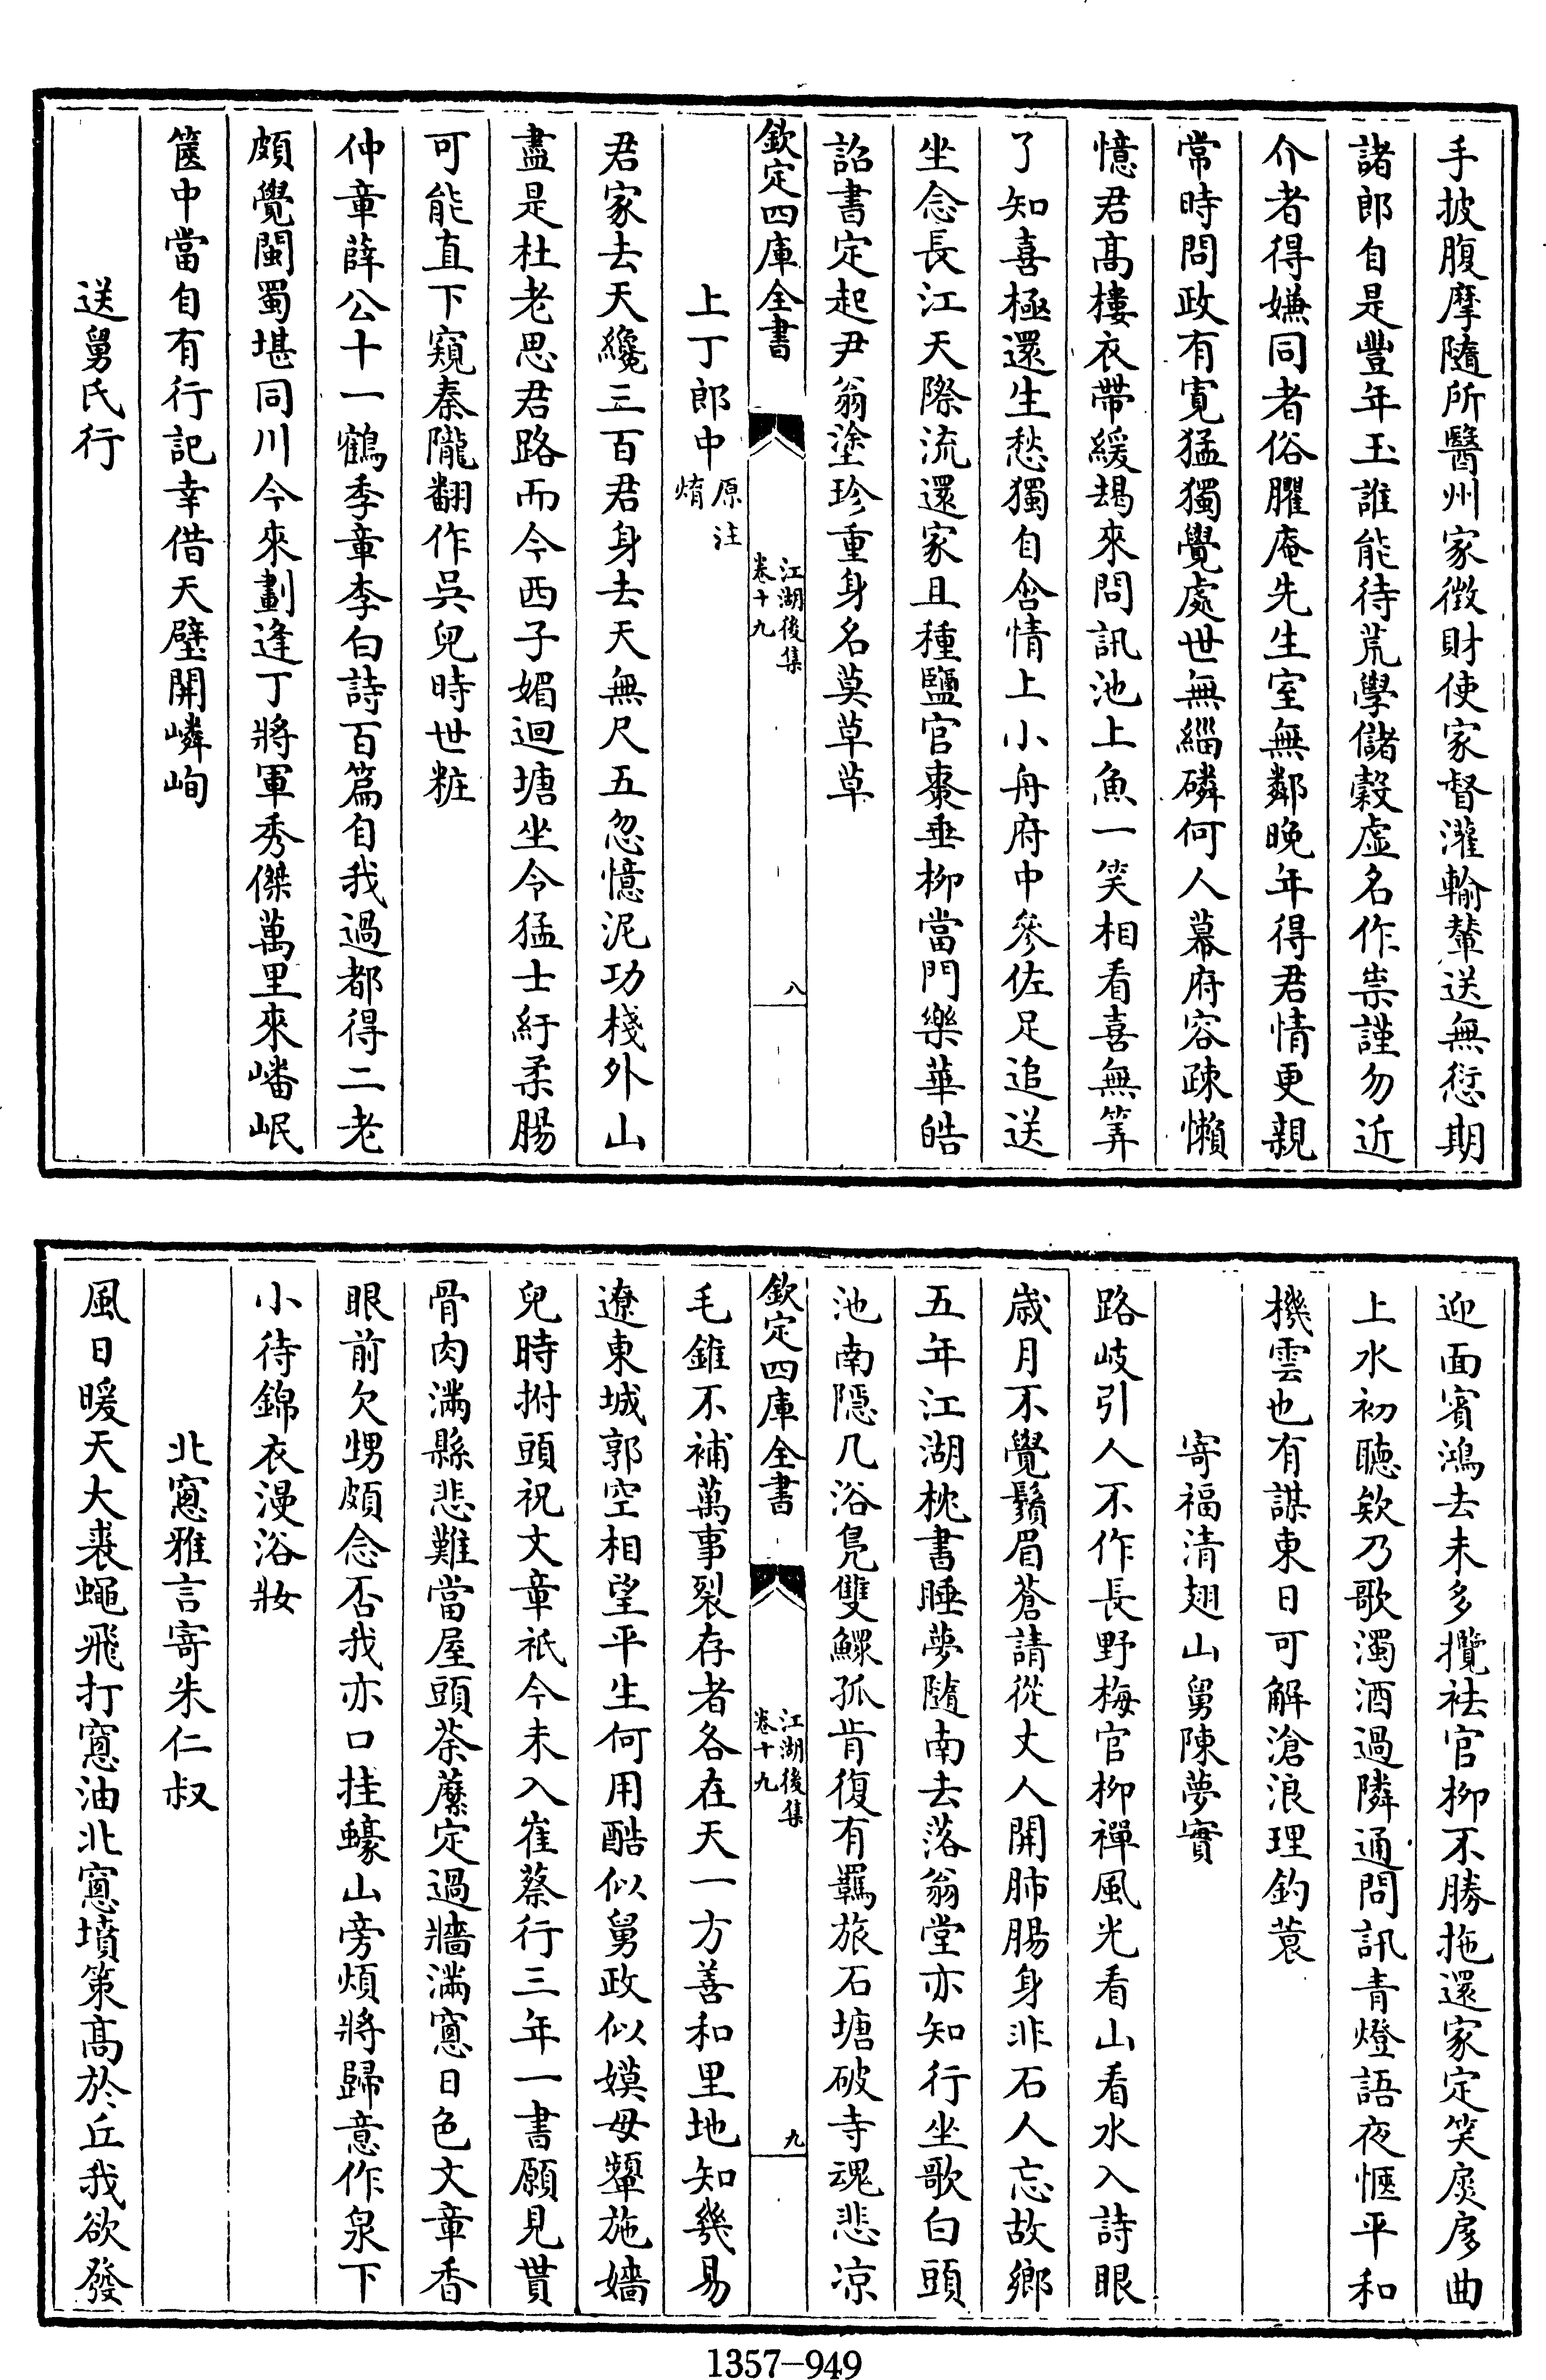 手披腹摩隨所醫州家徴財使家督灌輸輦送無愆期
諸郎自是豐年玉誰能待荒學儲穀虛名作祟謹勿近
介者得嫌同者俗臞庵先生室無鄰晚年得君情更親
常時問政有寛猛獨覺處世無緇磷何人幕府容疎懶
憶君髙樓衣帶緩朅來問訊池上魚一笑相看喜無筭
了知喜極還生愁獨自含情上小舟府中參佐足追送
坐念長江天際流還家且種鹽官棗垂柳當門樂華皓
詔書定起尹翁塗珍重身名莫草草
欽定四庫全書
江湖後集
卷十九
八
上丁郎中
原注
焴
君家去天纔三百君身去天無尺五忽憶泥功棧外山
盡是杜老思君路而今西子媚迴塘坐令猛士紆柔腸
可能直下窺秦隴翻作呉兒時世粧
仲章薛公十一鶴季章李白詩百篇自我過都得二老
頗覺閩蜀堪同川今來劃逢丁將軍秀傑萬里來嶓岷
篋中當自有行記幸借天壁開嶙峋
送舅氏行
迎面賓鴻去未多攬袪官柳不勝拖還家定笑扊扅曲
上水初聽欸乃歌濁酒過隣通問訊青燈語夜愜平和
機雲也有謀東日可解滄浪理釣蓑
寄福清翅山舅陳夢實
路岐引人不作長野梅官柳禪風光看山看水入詩眼
歳月不覺鬚眉蒼請從丈人開肺腸身非石人忘故鄉
五年江湖枕書睡夢隨南去落翁堂亦知行坐歌白頭
池南隱几浴鳬雙鰥孤肯復有羈旅石塘破寺魂悲凉
欽定四庫全書
江湖後集
卷十九
九
毛錐不補萬事裂存者各在天一方善和里地知幾易
遼東城郭空相望平生何用酷似舅政似嫫母顰施嬙
兒時拊頭祝文章祇今未入崔蔡行三年一書願見貫
骨肉滿縣悲難當屋頭荼蘼定過牆滿窻日色文章香
眼前欠甥頗念否我亦口挂蠔山旁煩將歸意作泉下
小待錦衣漫浴妝
北窻雅言寄朱仁叔
風日暖天大裘蠅飛打窻油北窻墳策髙於丘我欲發
1357-949